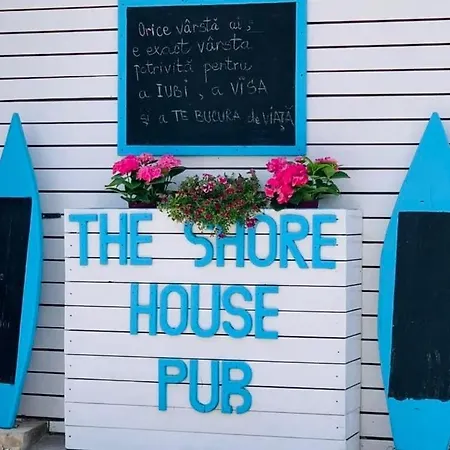 Orice vârstă ai,
e exact vârsta
potrivită pentru
a IUBI, a VISA
și a TE BUCURA de VIAȚĂ
THE SHORE
HOUSE
PUB